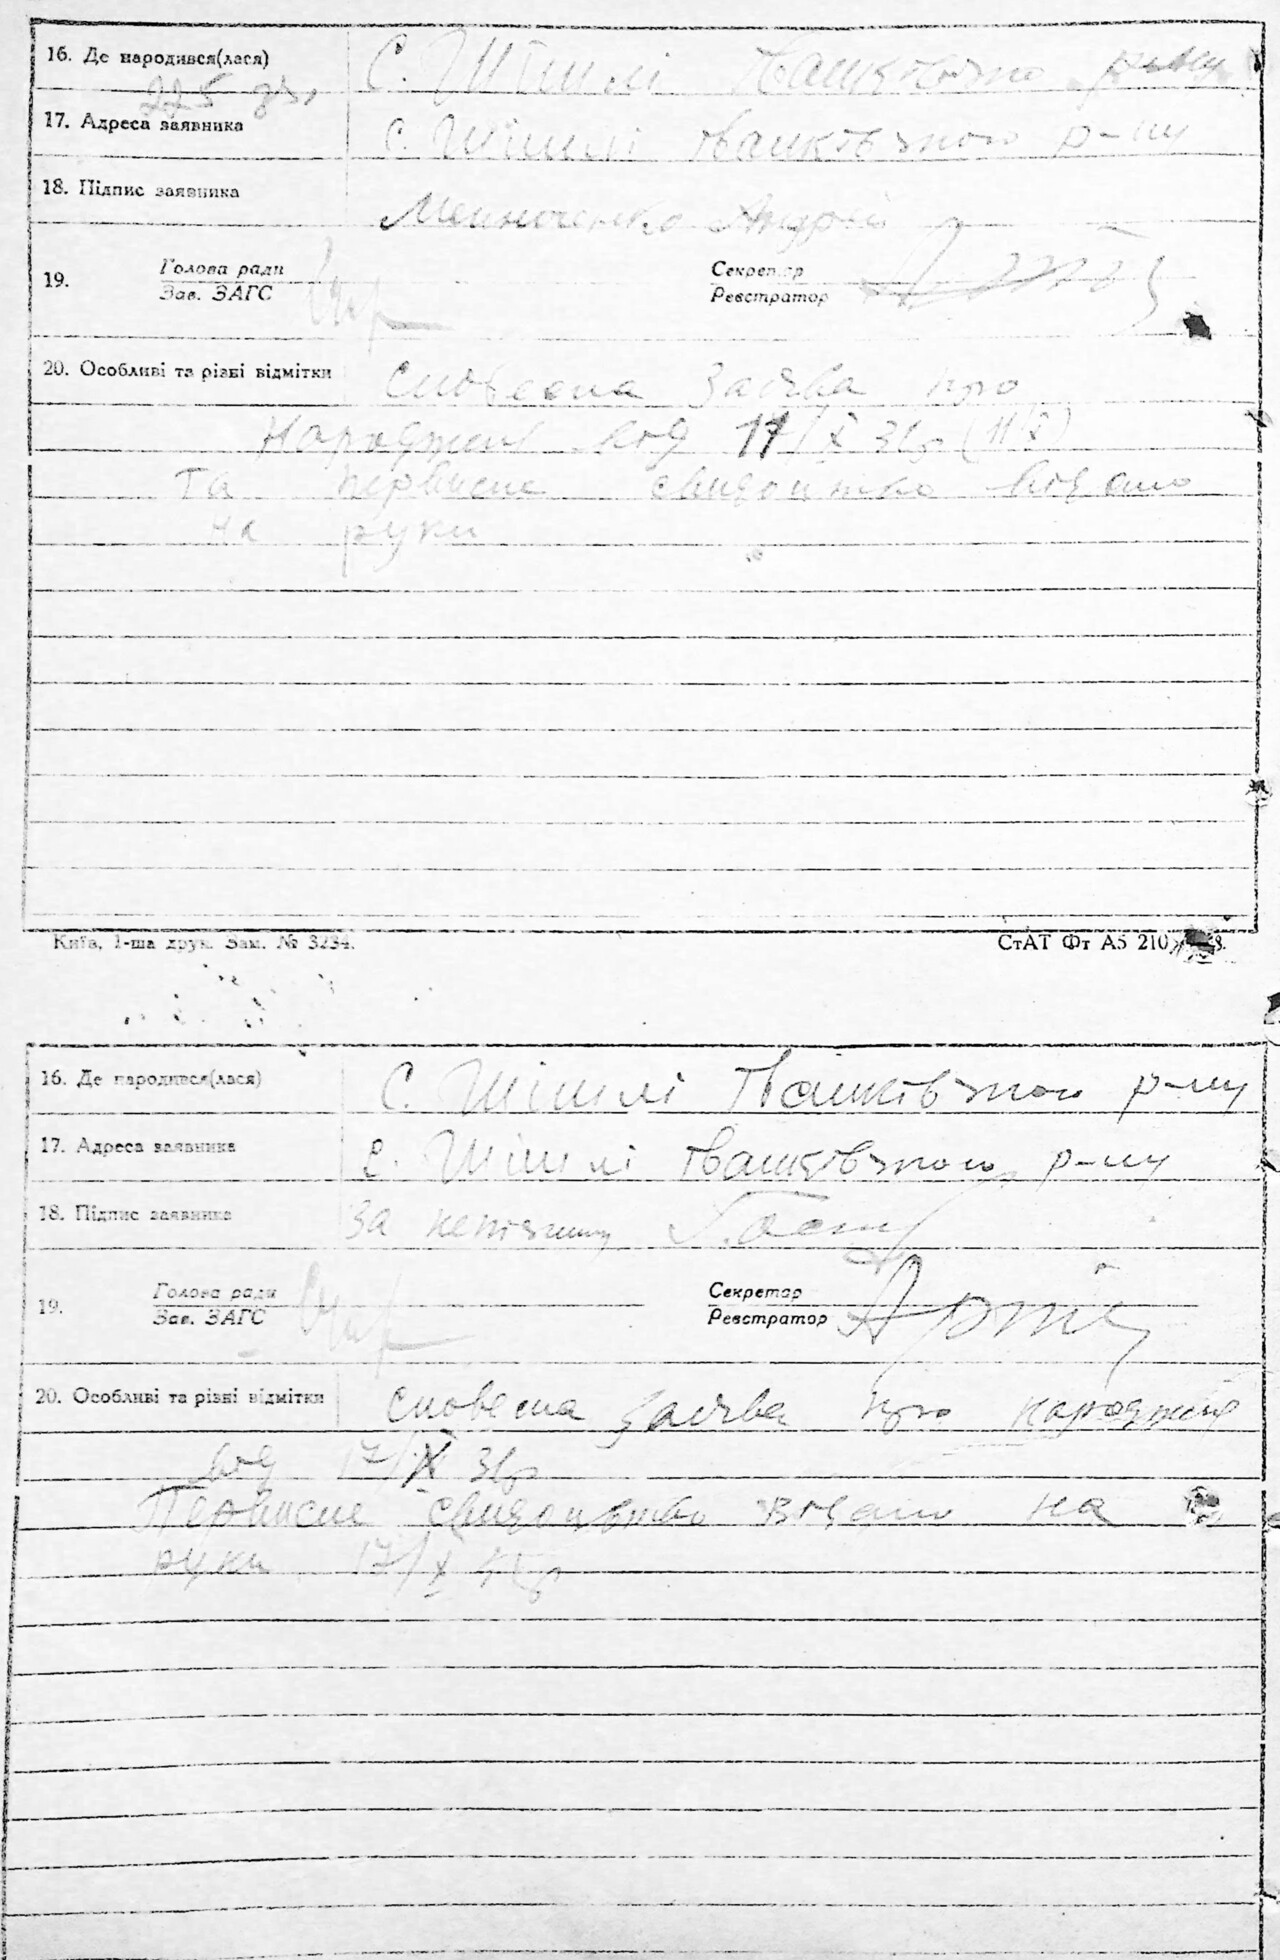 16. Де народився(лася) С. Шишлі Іванківського р-ну
225 зв.
17. Адреса заявника С. Шишлі Іванківського р-ну
18. Підпис заявника Андрій
19. Голова ради Секретар
Зав. ЗАГС Реєстратор
20. Особливі та різні відмітки Словесна заява про
народжен від 17/X 3
та первисне свидоцтво видано
на руки
Київ, 1-ша друк. Зам. № 3234.
СтАТ Фт А5 210
16. Де народився(лася) С. Шішлі Іванківського р-ну
17. Адреса заявника С. Шішлі Іванківського р-ну
18. Підпис заявника За
19. Голова ради Секретар
Зав. ЗАГС Реєстратор
20. Особливі та різні відмітки Словесна заява про народжен
від 17/X
Первисне свидоцтво видано на
руки 17/X